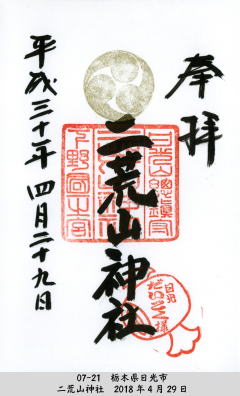 奉拝
二荒山神社
平成三十年 四月二十九日
日光
だいこく様
07-21 栃木県日光市
二荒山神社 2018年4月29日